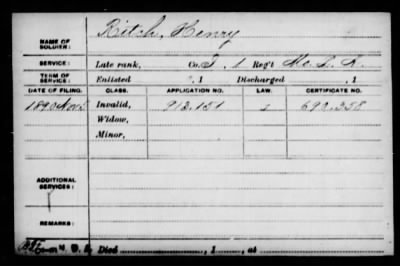 NAME OF SOLDIER: Ritch, Henry
SERVICE: Late rank, Co. I, 1 Reg't Me. S. S.
TERM OF SERVICE: Enlisted , 1 Discharged , 1
DATE OF FILING. CLASS. APPLICATION NO. LAW. CERTIFICATE NO.
1890 Nov 5 Invalid, 912.151 692.358
Widow,
Minor,
ADDITIONAL SERVICES:
REMARKS:
Died , 1 , at